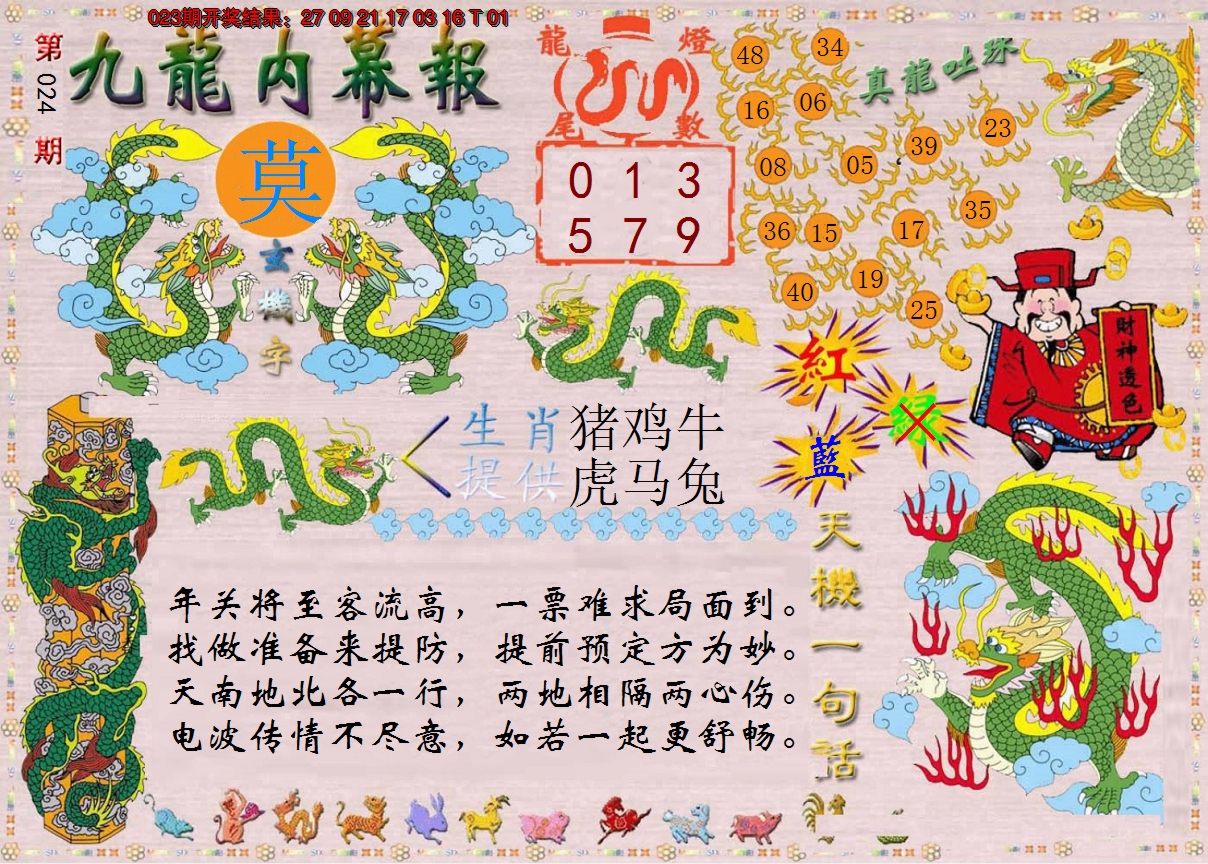 023期开奖结果：27 09 21 17 03 16 T 01
第024期
九龍内幕報
莫
玄機字
龍燈尾數
0 1 3
5 7 9
真龍吐珠
48 34
16 06
39 23
08 05
36 15 17 35
40 19 25
財神透色
紅
绿
藍
生肖 猪鸡牛
提供 虎马兔
天機一句話
年关将至客流高，一票难求局面到。
找做准备来提防，提前预定方为妙。
天南地北各一行，两地相隔两心伤。
电波传情不尽意，如若一起更舒畅。